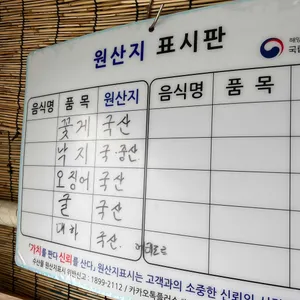 원산지 표시판
음식명 품 목 원산지 음식명 품 목
꽃게 국산
낙지 국·중산
오징어 국산
굴 국산
대하 국산.
「가치를 짠다 신뢰를 산다」 원산지표시는 고객과의 소중한
수산물 원산지표시 위반신고 : 1899-2112 / 카카오톡플러스